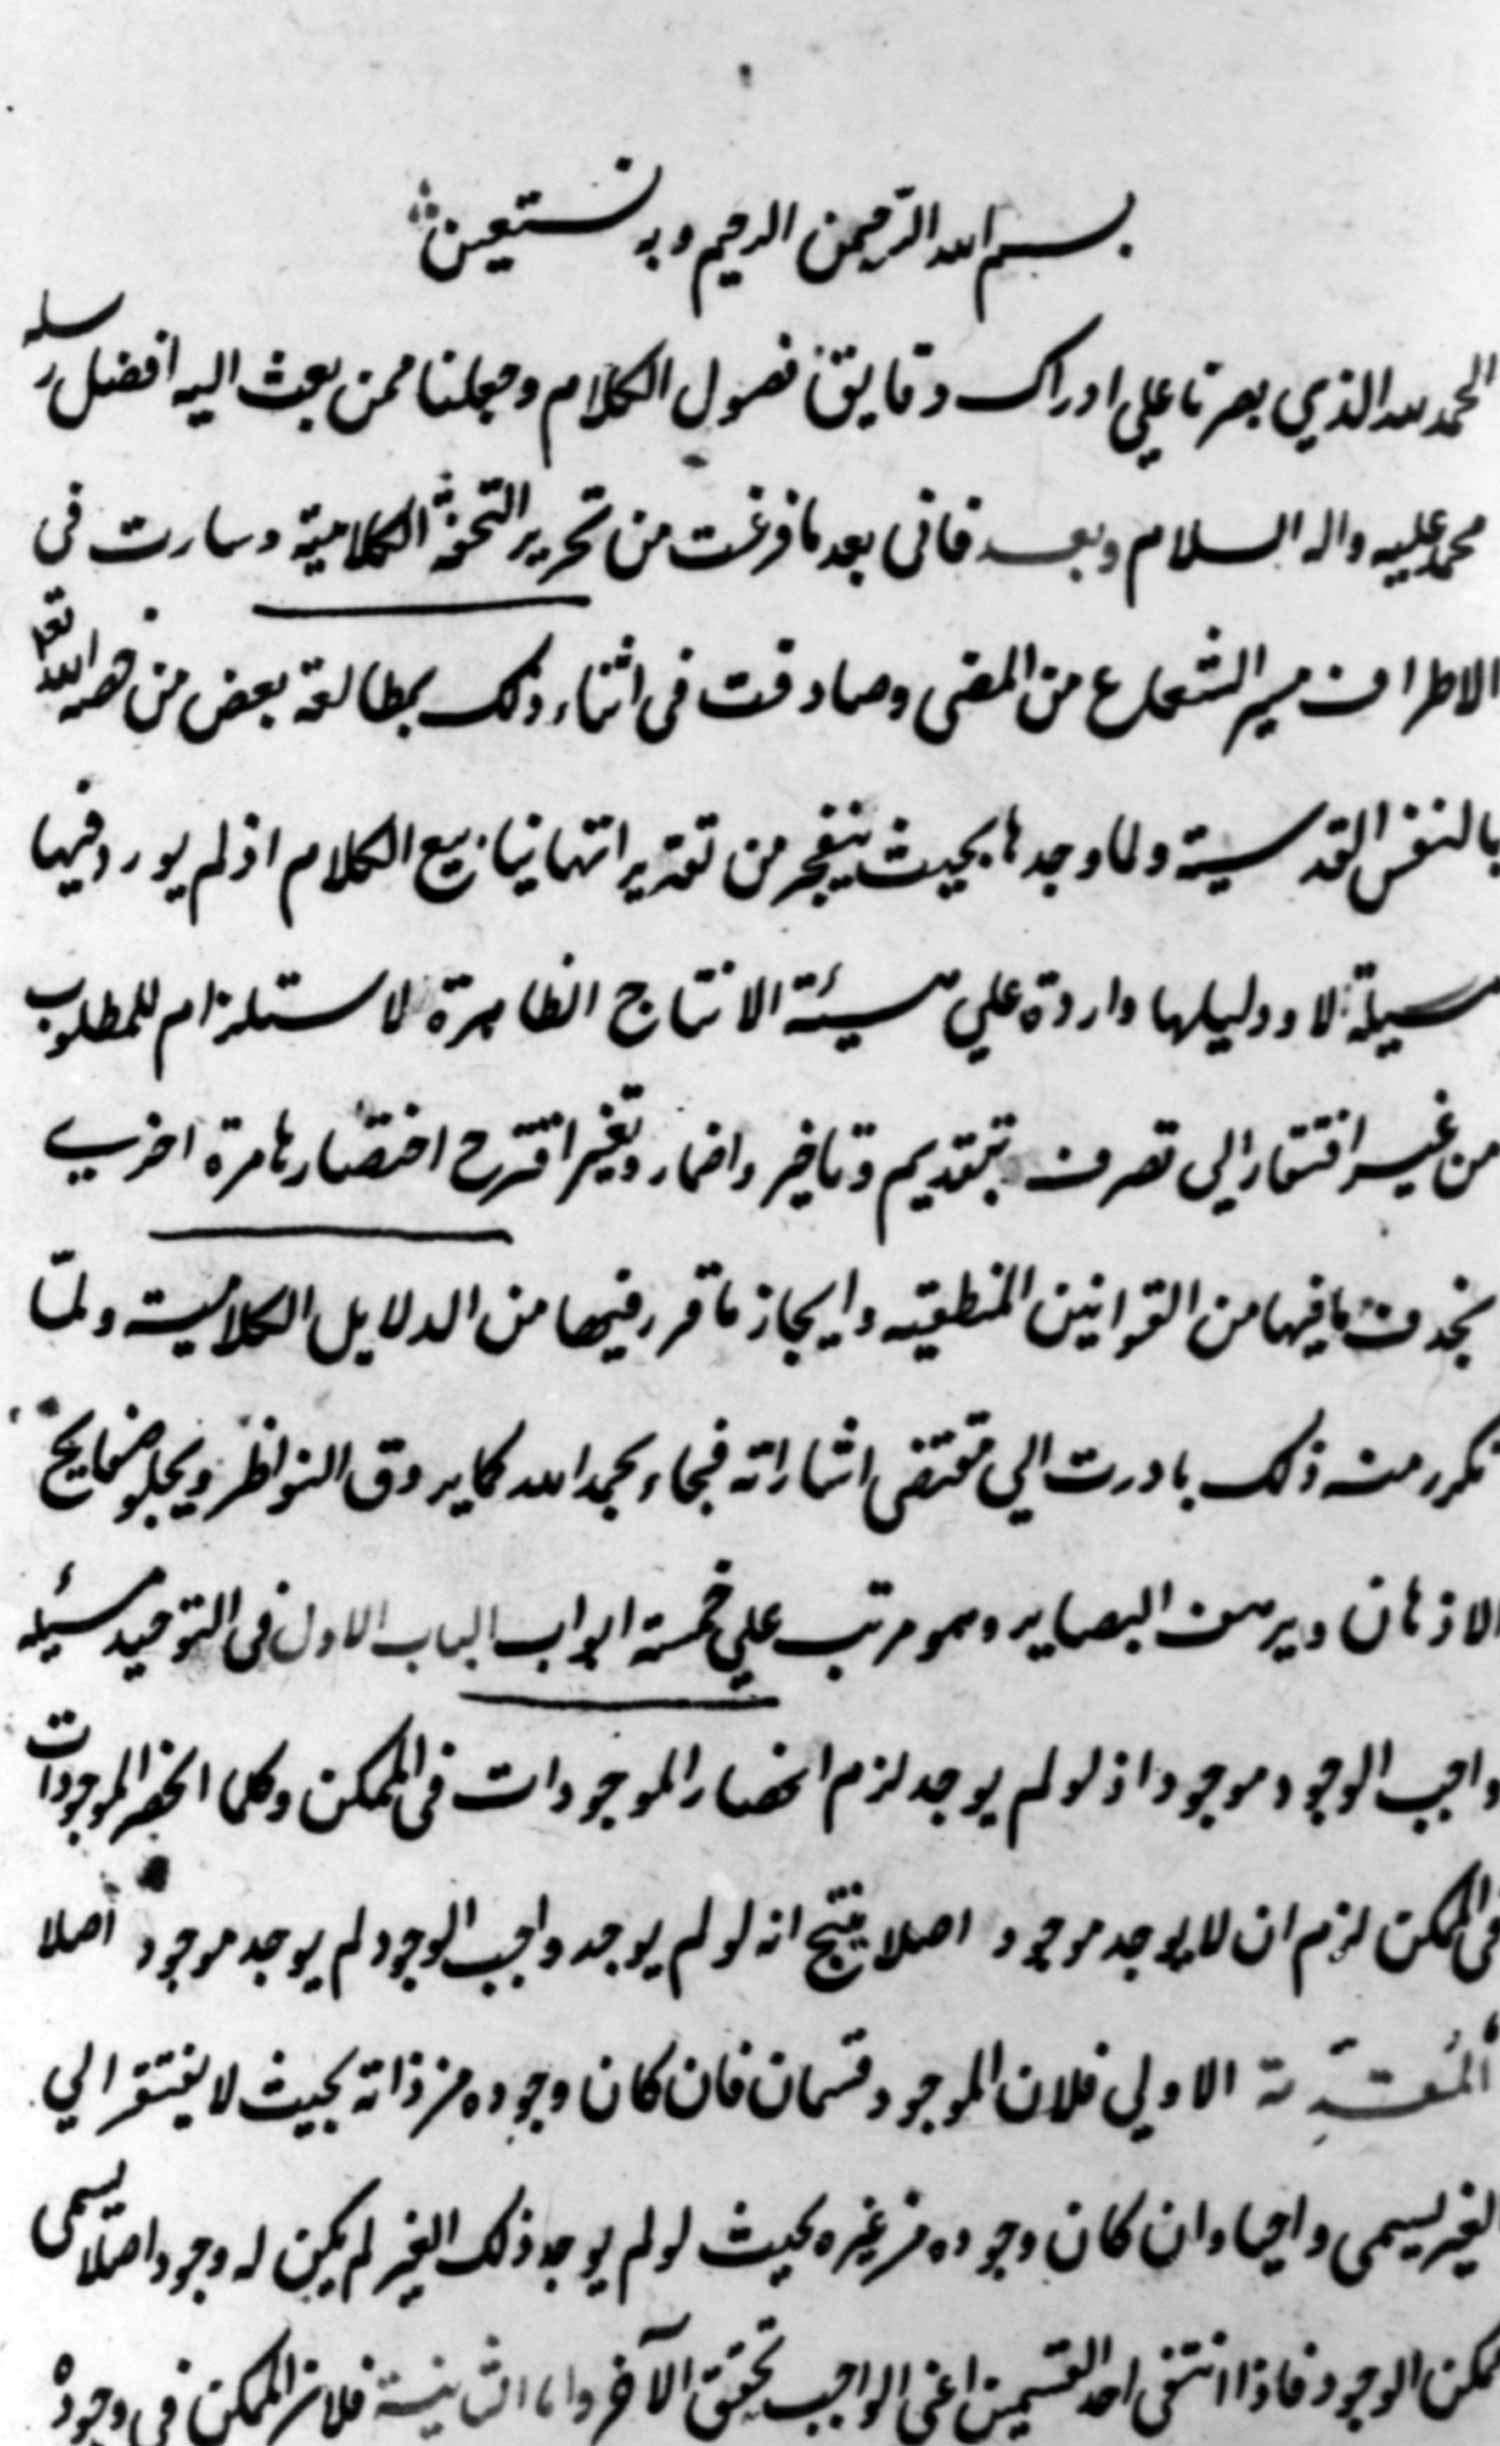 بسم الله الرحمن الرحيم وبه نستعين
الحمد لله الذي بصرنا علي ادراك دقايق فصول الكلام وجعلنا ممن بعث اليه افضل رسله
محمد عليه واله السلام وبعد فاني بعد ما فرغت من تحرير التحفة الكلامية وسارت في
الاطراف مسير الشعاع من المضى وصادفت في اثناء ذلك بمطالعة بعض من خصه الله تعا
بالنفس القدسية ولما وجدها بحيث ينفجر من تقريراتها ينابيع الكلام اذ لم يورد فيها
مسيلة الا ودليلها واردة علي هيئة الانتاج الظاهرة الاستلزام للمطلوب
من غير افتقار الي تصرف بتقديم وتاخير واضمار وتغير اقترح اختصارها مرة اخري
بحذف ما فيها من القوانين المنطقيه وايجاز ما قرر فيها من الدلايل الكلامية ولما
تكرر منه ذلك بادرت الي مقتضى اشاراته فجاء بحمد الله كما يروق النواظر ويجلو
الاذهان ويرهف البصاير وهو مرتب علي خمسة ابواب الباب الاول في التوحيد مسيله
واجب الوجود موجود اذ لو لم يوجد لزم انحصار الموجودات في الممكن وكلما انحصر الموجودات
في الممكن لزم ان لا يوجد موجود اصلا ينتج انه لو لم يوجد واجب الوجود لم يوجد موجود اصلا
المقدمة الاولي فلان الموجود قسمان فان كان وجوده من ذاته بحيث لا يفتقر الي
لغير يسمى واجبا وان كان وجوده من غيره بحيث لو لم يوجد ذلك الغير لم يكن له وجود اصلا يسمى
ممكن الوجود فاذا انتفى احد القسمين اعني الواجب تحقق الآخر واما الثانية فلان الممكن في وجوده